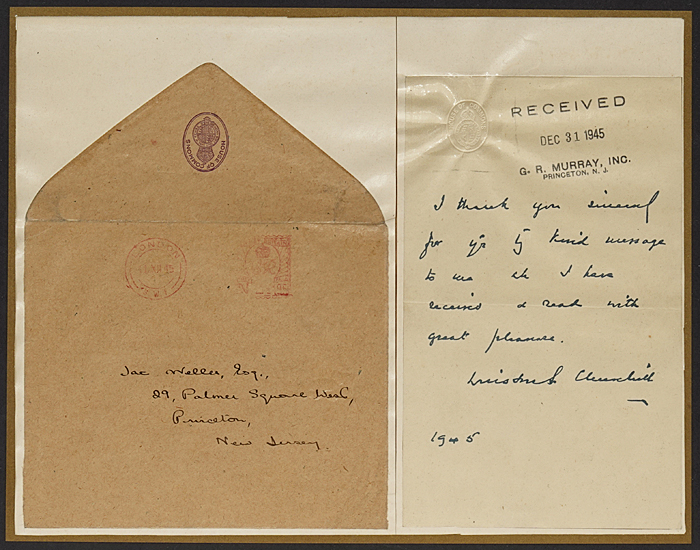 HOUSE OF COMMONS
LONDON
S.W.1
Jac Weller, Esq.,
29, Palmer Square West,
Princeton,
New Jersey.
RECEIVED
DEC 31 1945
G. R. MURRAY, INC.
PRINCETON, N. J.
I thank you sincerely
for yr kind message
to me wh I have
received & read with
great pleasure.
Winston S. Churchill
1945